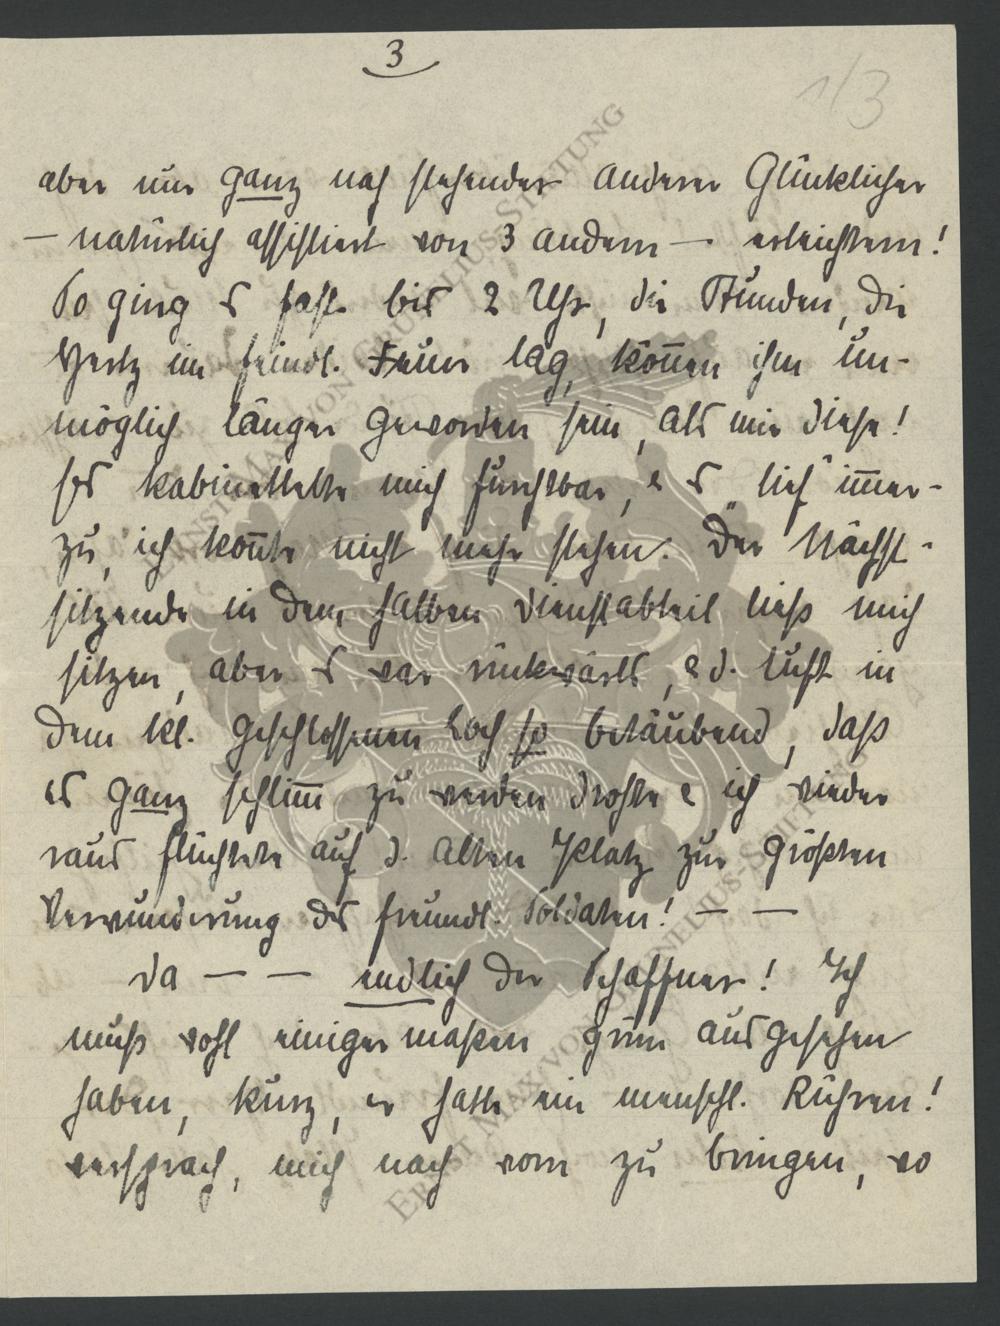 3
1/3
aber nur ganz nah stehender anderer Glücklicher
— natürlich assistiert von 3 andern — erleichtern!
So ging es fast bis 2 Uhr, die Stunden, die
im feindl. Feuer lag, können ihm un-
möglich länger geworden sein, als mir diese!
Es mich furchtbar, & es „lief" immer-
zu, ich konnte nicht mehr stehen. Der Nächst-
sitzende in dem halben Dienstabteil ließ mich
sitzen, aber es war rückwärts, & d. Luft in
dem kl. geschlossenen Loch so betäubend, daß
es ganz schlimm zu werden drohte & ich wieder
raus flüchtete auf d. alten Platz zur größten
Verwunderung des freundl. Soldaten! — —
Da — — endlich der Schaffner! Ich
muß wohl einigermaßen grün ausgesehen
haben, kurz, er hatte ein menschl. Rühren!
versprach, mich nach vorn zu bringen, wo
ERNST MAX VON GRUNELIUS-STIFTUNG
ERNST MAX VON GRUNELIUS-STIFTUNG